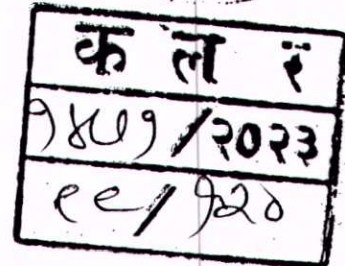 क ल र
१४७१/२०२३
९९/१२०